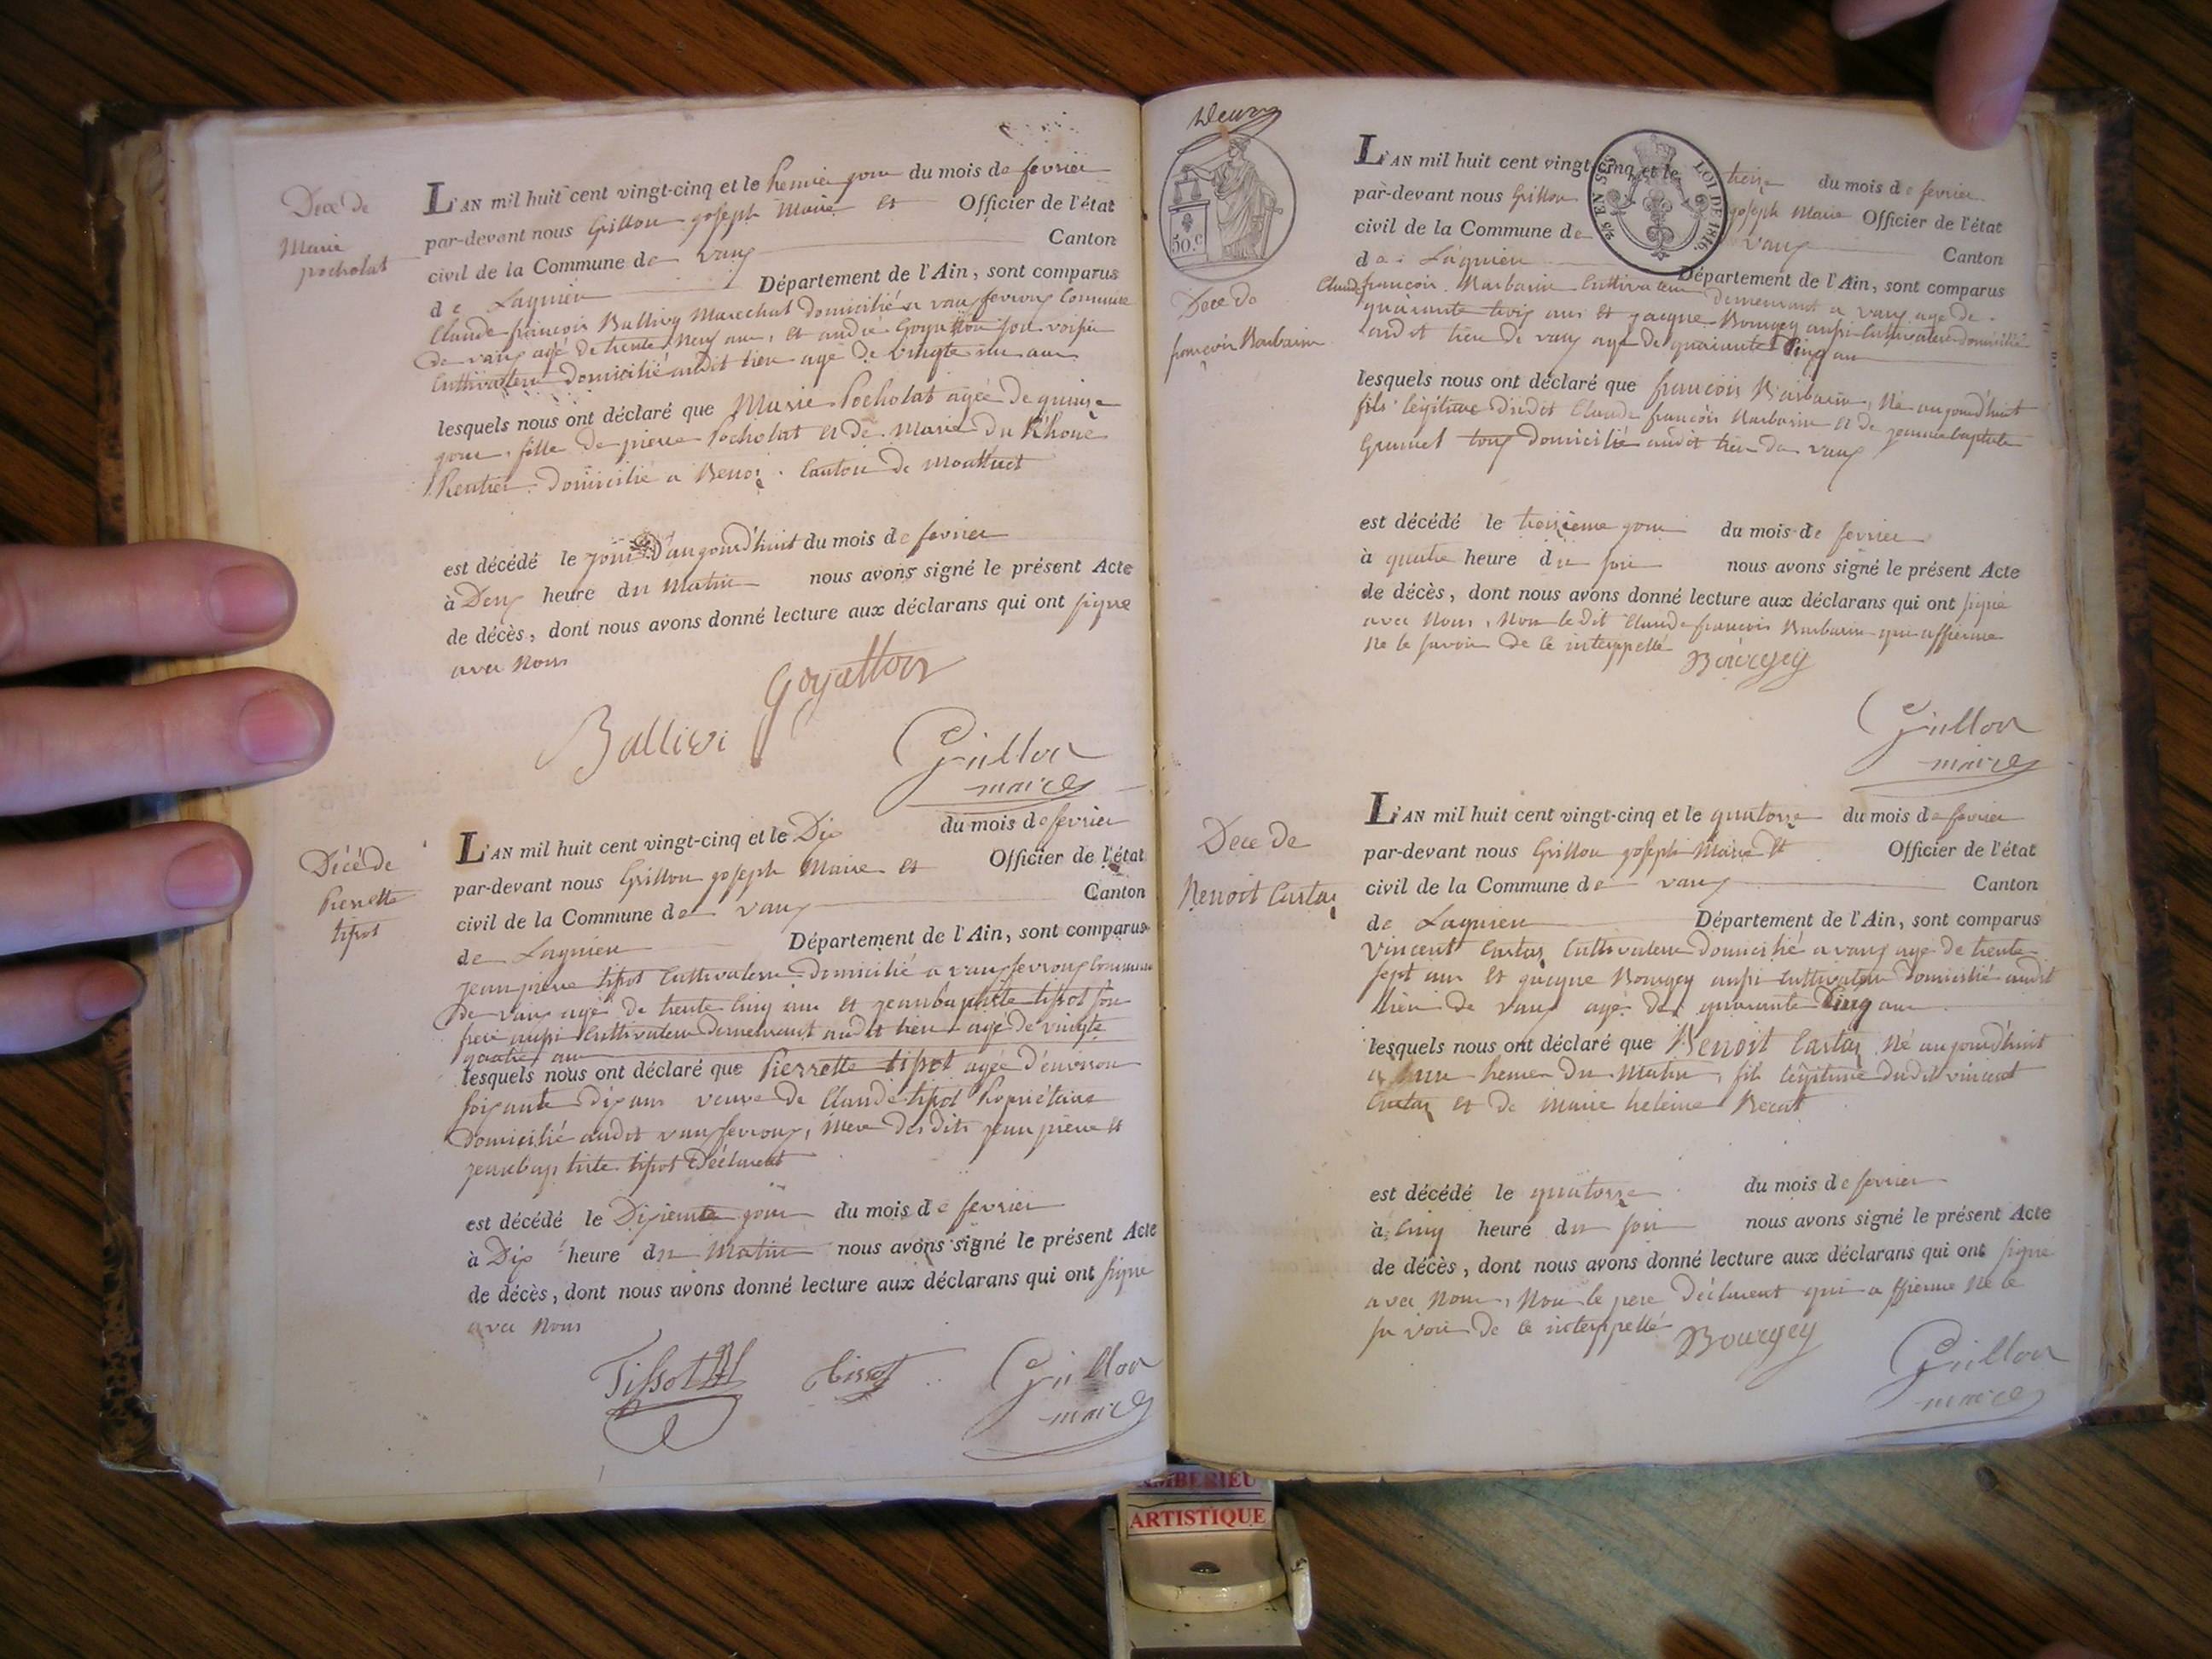 Dece de
Marie
pocholat
L'AN mil huit cent vingt-cinq et le Premier jour du mois de fevrier
par-devant nous Grillon joseph Maire et Officier de l'état
civil de la Commune de vaux Canton
de Lagnieu Département de l'Ain, sont comparus
Claude françois Ballivy Marechal domicilié a vauxfevroux Commune
de vaux agé de trente neuf ans, et andré Goyatton son voisin
Cultivateur domicilié audit lieu agé de vingte ans
lesquels nous ont déclaré que Marie Pocholat agée de quinze
jour, fille de pierre Pocholat et de Marie du Rhoue
Rentier domicilié a Benoz Canton de Montluet
est décédé le jour D'aujourd'huit du mois de fevrier
à Deux heure du Matin nous avons signé le présent Acte
de décès, dont nous avons donné lecture aux déclarans qui ont signé
avec Nous
Goyatton
Ballivi
Grillon
maire
Décé de
Pierrette
tissot
L'AN mil huit cent vingt-cinq et le Dix du mois de fevrier
par-devant nous Grillon joseph Maire et Officier de l'état
civil de la Commune de vaux Canton
de Lagnieu Département de l'Ain, sont comparus
jeanpierre tissot Cultivateur domicilié a vauxfevroux Commune
de vaux agé de trente Cinq ans et jeanbaptiste tissot son
frere aussi Cultivateur demeurant audit lieu agé de vingte
quatre ans
lesquels nous ont déclaré que Pierrette tissot agée d'environ
soixante dix ans veuve de Claude tissot Propriétaire
domicilié audit vauxfevroux, Mere des dits jean pierre et
jeanbaptiste tissot Déclarent
est décédé le Dixieme jour du mois de fevrier
à Dix heure du Matin nous avons signé le présent Acte
de décès, dont nous avons donné lecture aux déclarans qui ont signé
avec Nous
Tissot Tissot Grillon
maire
Deux
50.c
2/5 EN SUS LOI DE 1816.
Dece de
françois Barbarin
L'AN mil huit cent vingt-cinq et le treize du mois de fevrier
par-devant nous Grillon joseph Maire Officier de l'état
civil de la Commune de vaux Canton
de Lagnieu Département de l'Ain, sont comparus
Claude françois Barbarin Cultivateur demeurant a vaux agé de
quarante trois ans et jacque Bourgey aussi Cultivateur domicilié
audit lieu de vaux agé de quarante Cinq ans
lesquels nous ont déclaré que françois Barbarin, Né aujourd'huit
fils légitime dudit Claude françois Barbarin et de jeannebaptiste
Grumet tous domicilié audit lieu de vaux
est décédé le treizieme jour du mois de fevrier
à quatre heure du soir nous avons signé le présent Acte
de décès, dont nous avons donné lecture aux déclarans qui ont signé
avec Nous, Non le dit Claude françois Barbarin qui affierme
ne le savoir de ce interppellé Bourgey
Grillon
maire
Dece de
Benoit Cartaz
L'AN mil huit cent vingt-cinq et le quatorze du mois de fevrier
par-devant nous Grillon joseph Maire et Officier de l'état
civil de la Commune de vaux Canton
de Lagnieu Département de l'Ain, sont comparus
Vincent Cartaz Cultivateur domicilié a vaux agé de trente
sept ans et jacque Bourgey aussi Cultivateur domicilié audit
lieu de vaux agé de quarante Cinq ans
lesquels nous ont déclaré que Benoit Cartaz Né aujourd'huit
a une heure du Matin, fils légitime dudit vincent
Cartaz et de Marie heleine
est décédé le quatorze du mois de fevrier
à Cinq heure du soir nous avons signé le présent Acte
de décès, dont nous avons donné lecture aux déclarans qui ont signé
avec Nous, Non le pere Déclarent qui a ffierme Ne le
sa voir de ce interppellé Bourgey
Grillon
maire
AMBERIEU
ARTISTIQUE